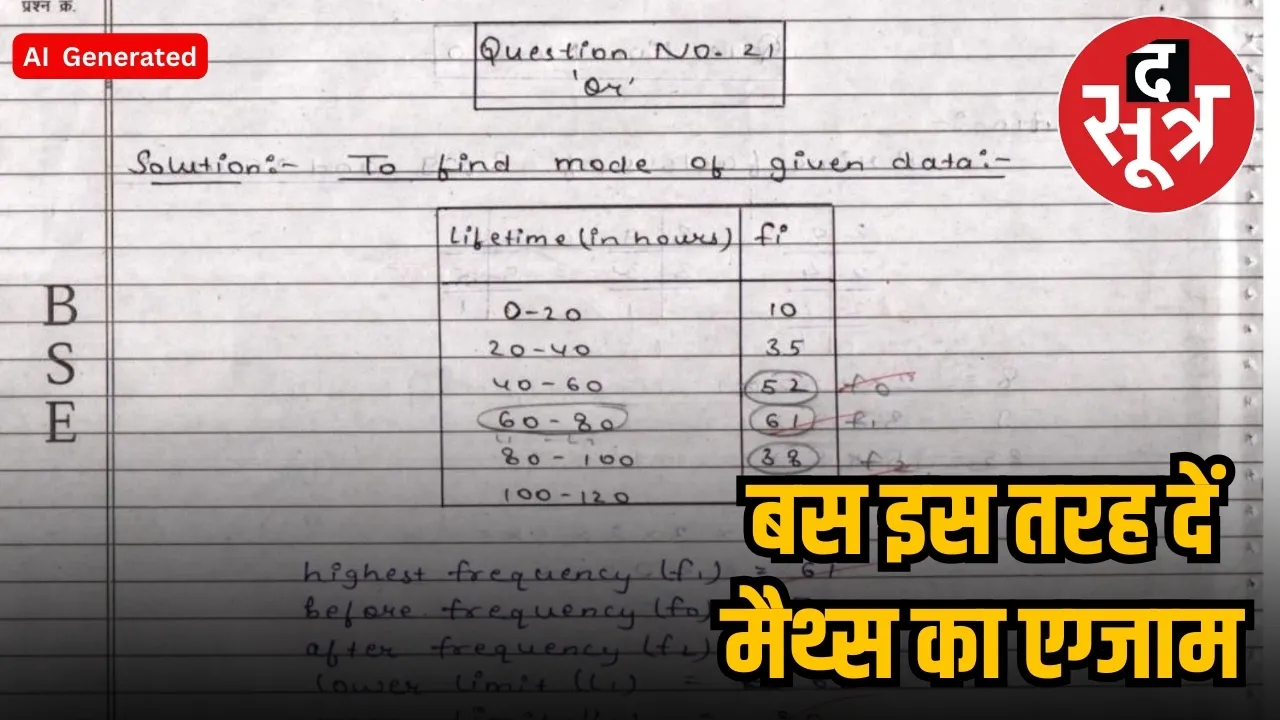 प्रश्न क्र.
AI Generated
द
सूत्र
Question No. 21
'Or'
Solution:- To find mode of given data:-
Lifetime (in hours) fi
0-20 10
20-40 35
40-60 52 f0
60-80 61 f1
80-100 38 f2
100-120
B
S
E
highest frequency (f1) = 61
before frequency (f0)
after frequency (f2)
lower limit (l1) =
बस इस तरह दें
मैथ्स का एग्जाम